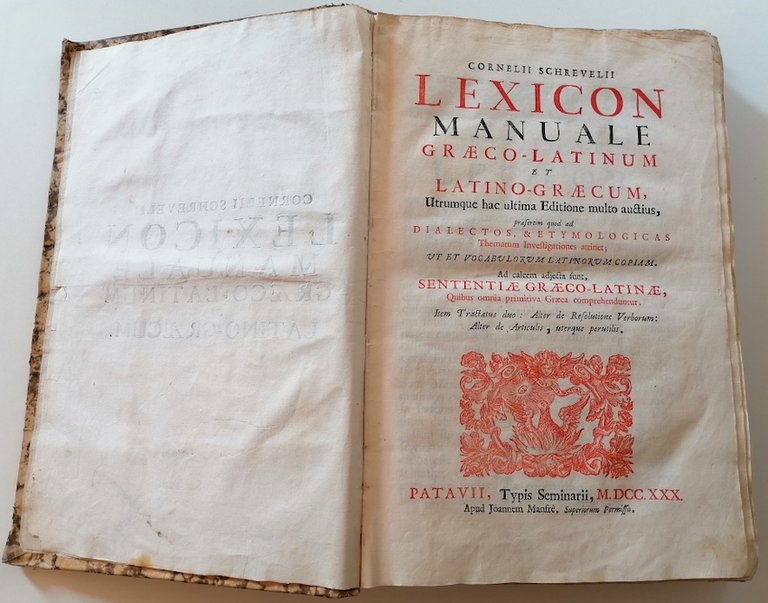 CORNELII SCHREVELII
LEXICON
MANUALE
GRÆCO-LATINUM
ET
LATINO-GRÆCUM,
Utrumque hac ultima Editione multo auctius,
præsertim quod ad
DIALECTOS, & ETYMOLOGICAS
Thematum Investigationes attinet;
UT ET VOCABULORUM LATINORUM COPIAM.
Ad calcem adjecta sunt,
SENTENTIÆ GRÆCO-LATINÆ,
Quibus omnia primitiva Græca comprehenduntur.
Item Tractatus duo: Alter de Resolutione Verborum:
Alter de Articulis, uterque perutilis.
PATAVII, Typis Seminarii, M.DCC.XXX.
Apud Joannem Manfrè. Superiorum Permissu.
CORNELII SCHREVELI
LEXICON
MANUALE
GRÆCO-LATINUM
LATINO-GRÆCUM.